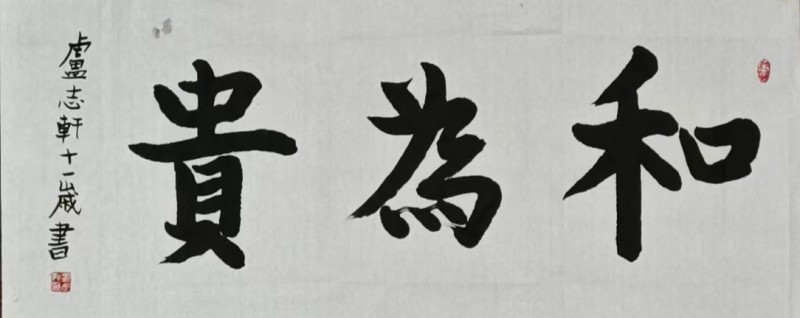 和為貴
盧志軒十一歲書